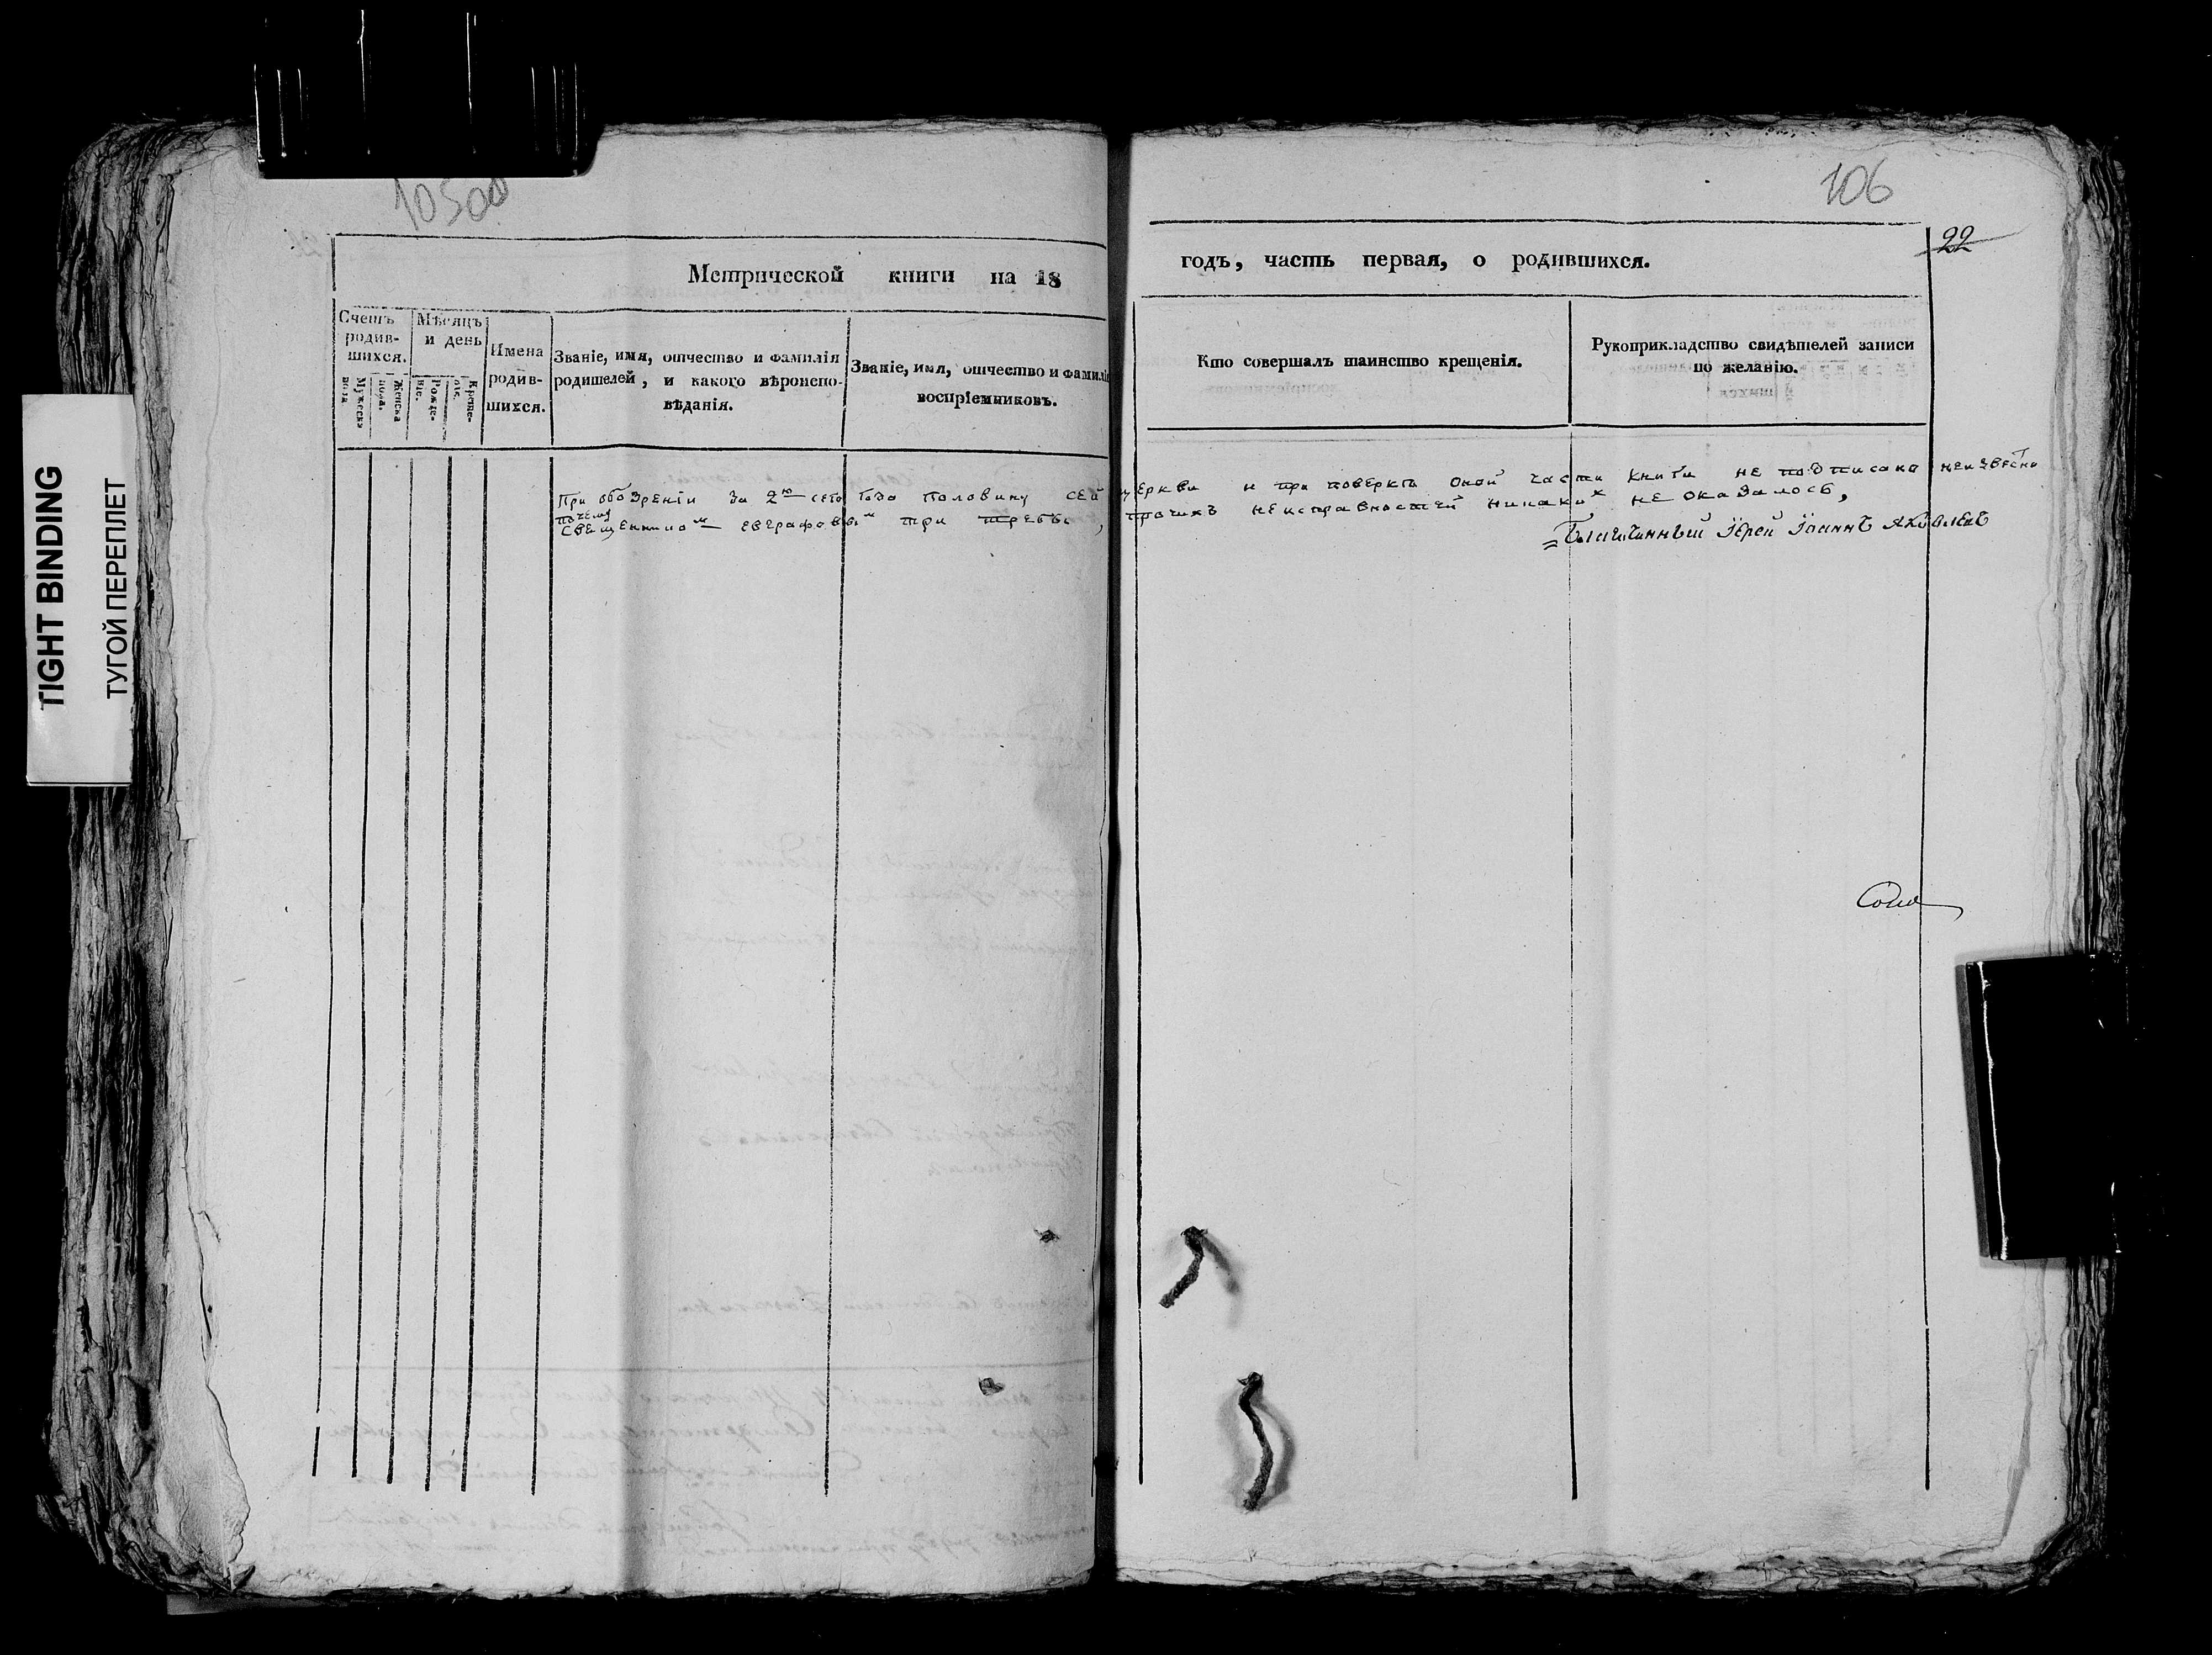 105об
106
22
Метрической книги на 18
годъ, часть первая, о родившихся.
Счетъ родив-
шихся.
Мужеска
пола
Женска
пола.
Мѣсяцъ
и день
Рожде-
ніе.
Креще-
ніе.
Имена
родив-
шихся.
Званіе, имя, отчество и фамилія
родителей, и какого вѣроиспо-
вѣданія.
Званіе, имя, отчество и фамилія
воспріемниковъ.
Кто совершалъ таинство крещенія.
Рукоприкладство свидѣтелей записи
по желанію.
При обозреніи за 2ю сего года половину сей церкви и при поверкѣ оной части книги не подписано неизвестно
почему
священникомъ Евграфовымъ три требы, прочихъ неисправностей никакихъ не оказалось,
Благочинный Іерей Іоаннъ Яковлевъ
TIGHT BINDING
ТУГОЙ ПЕРЕПЛЕТ